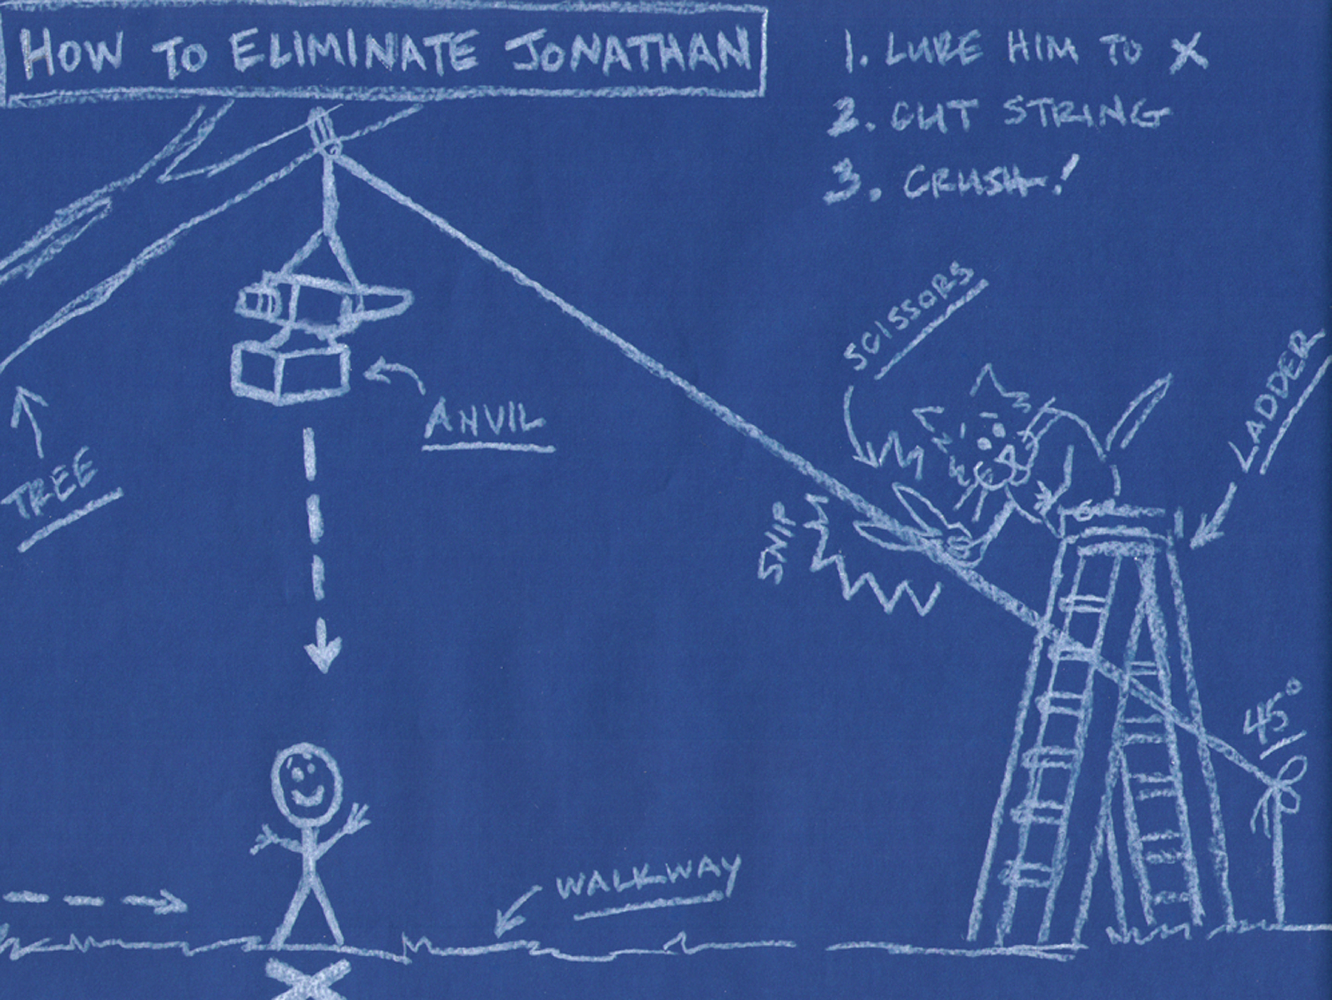 HOW TO ELIMINATE JONATHAN
1. LURE HIM TO X
2. CUT STRING
3. CRUSH!
SCISSORS
LADDER
ANVIL
TREE
SNIP
45°
WALKWAY
X